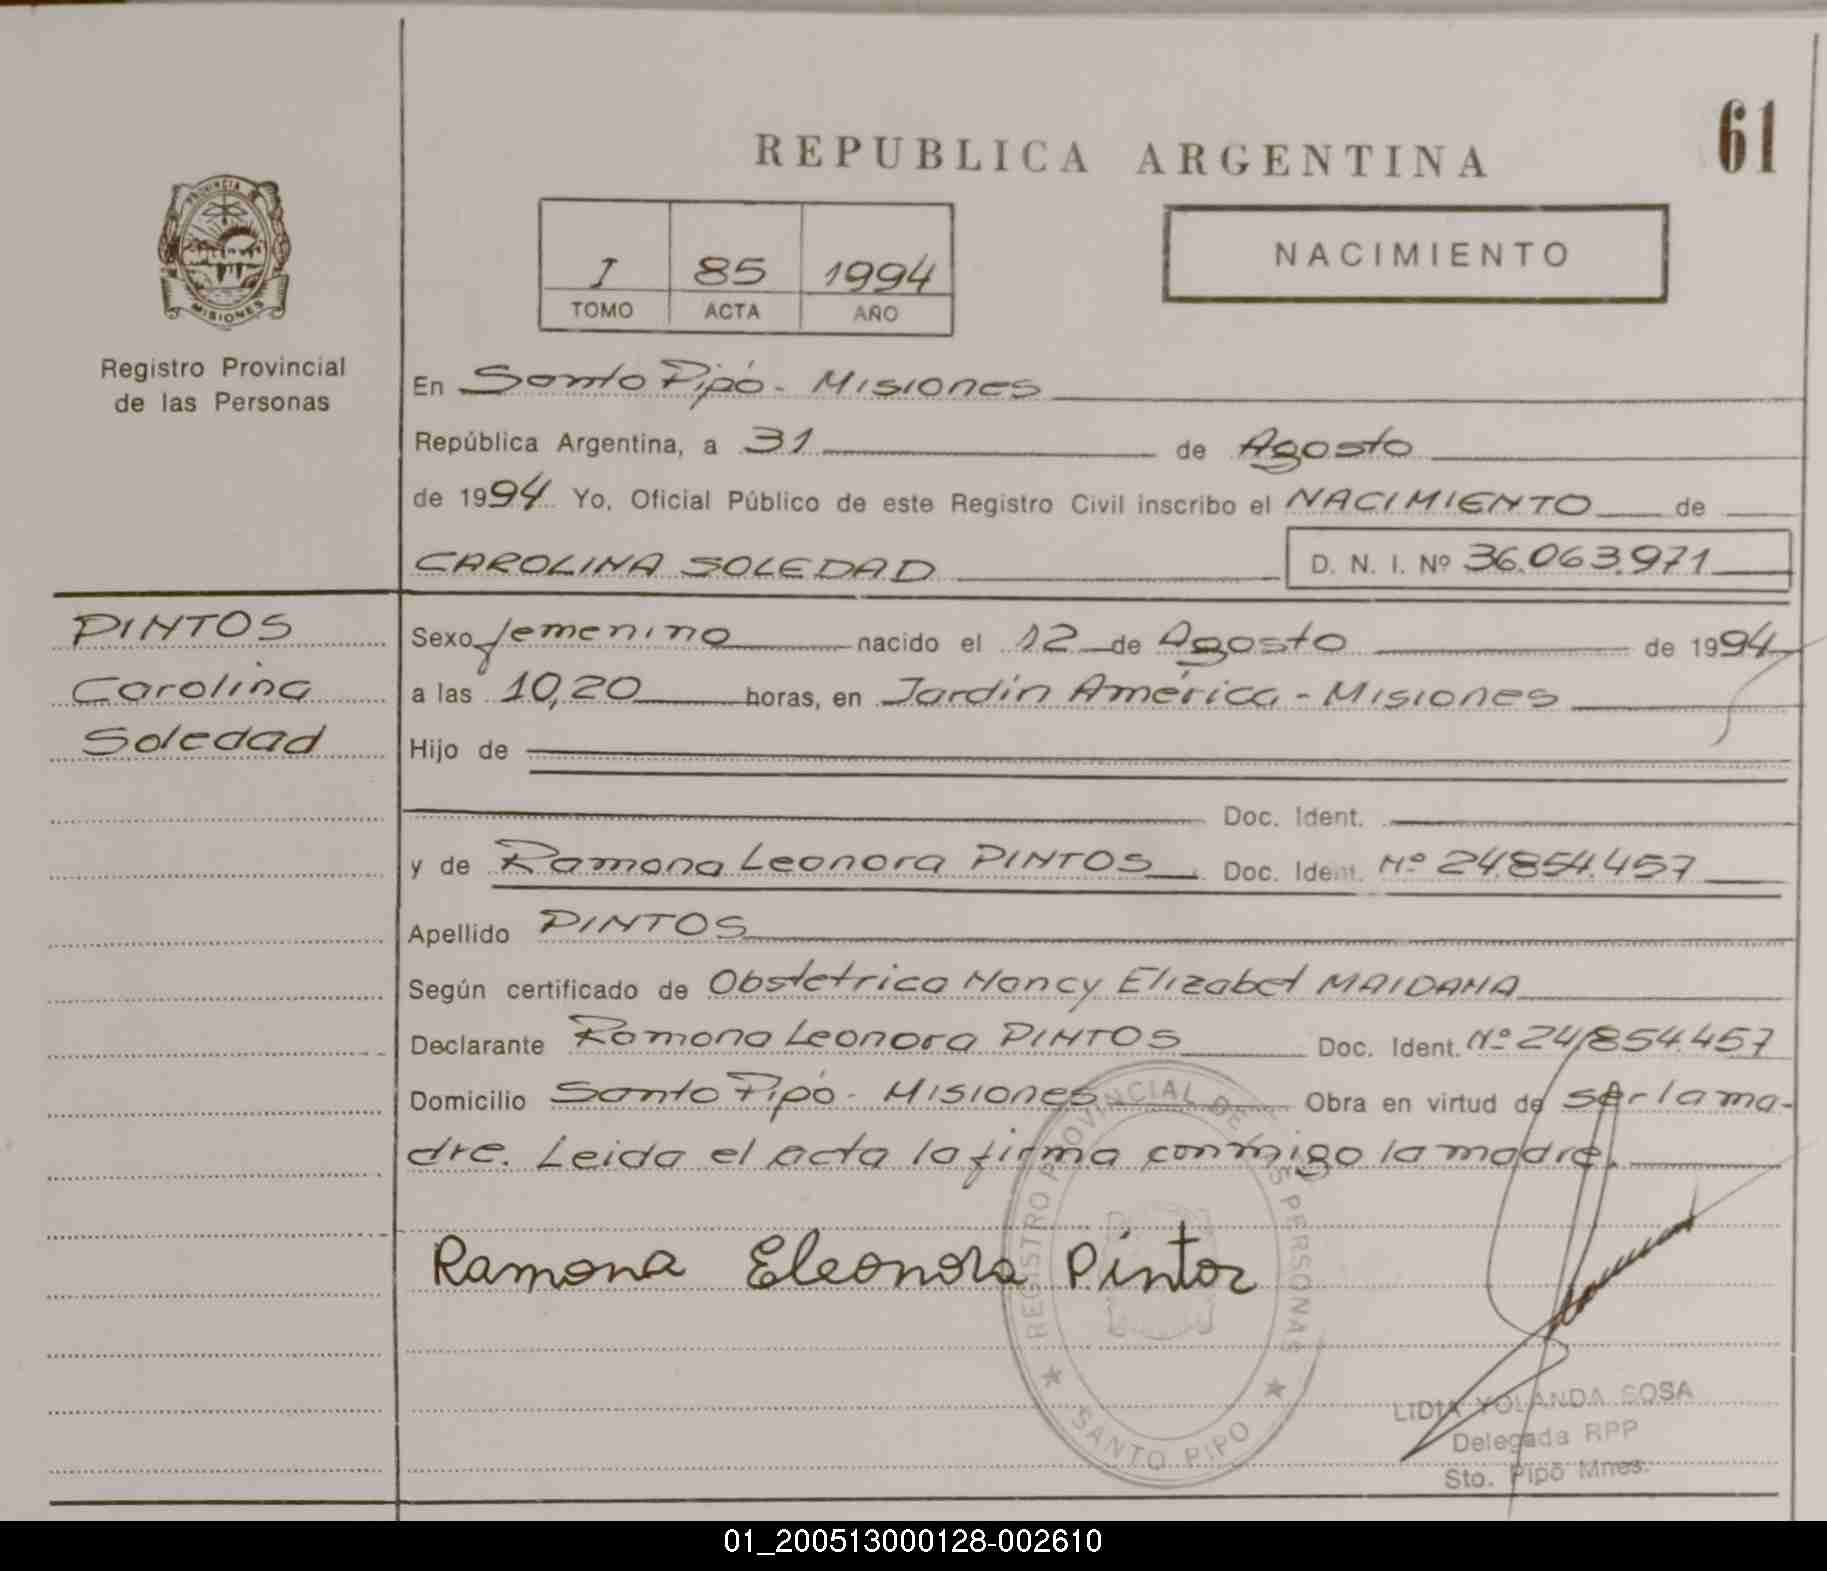 61
REPUBLICA ARGENTINA
PROVINCIA
MISIONES
Registro Provincial
de las Personas
I 85 1994
TOMO ACTA AÑO
NACIMIENTO
En Santo Pipó - Misiones
República Argentina, a 31 de Agosto
de 1994 Yo, Oficial Público de este Registro Civil inscribo el NACIMIENTO de
CAROLINA SOLEDAD D. N. I. Nº 36.063.971
PINTOS
Carolina
Soledad
Sexo femenino nacido el 12 de Agosto de 1994
a las 10,20 horas, en Jardín América - Misiones
Hijo de
Doc. Ident.
y de Ramona Leonora PINTOS Doc. Ident. Nº 24.854.457
Apellido PINTOS
Según certificado de Obstetrica Nancy Elizabet MAIDANA
Declarante Ramona Leonora PINTOS Doc. Ident. Nº 24.854.457
Domicilio Santo Pipó - Misiones Obra en virtud de ser la ma-
dre. Leida el acta la firma conmigo la madre.
Ramona Eleonora Pintos
REGISTRO PROVINCIAL DE LAS PERSONAS
SANTO PIPO
LIDIA YOLANDA SOSA
Delegada RPP
Sto. Pipó Mnes.
01_200513000128-002610